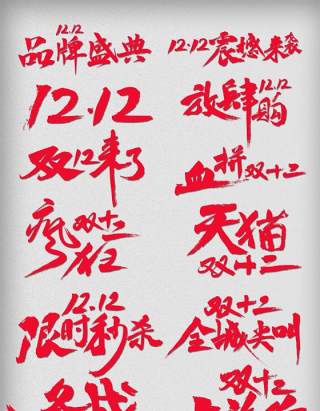 12.12
品牌盛典
12·12震撼来袭
12.12
放肆购
12.12
双12来了
血拼双十二
疯狂双十二
天猫
双十二
12.12
限时秒杀
双十二
全城尖叫
双十二